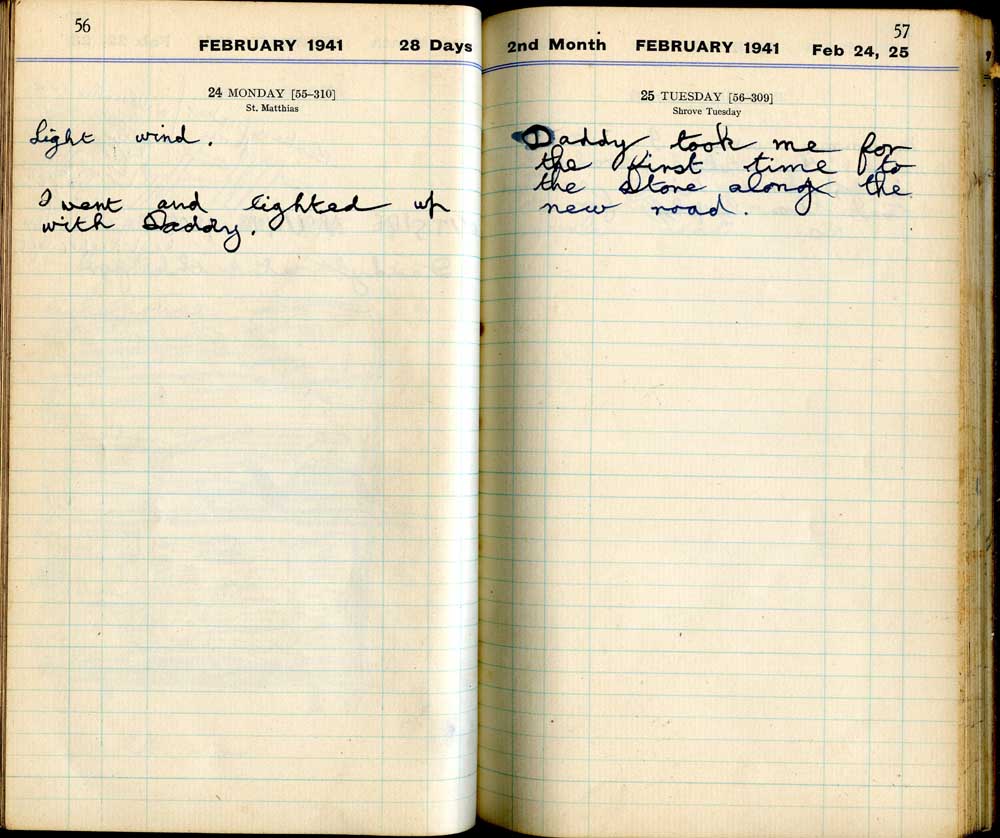 56
FEBRUARY 1941 28 Days
24 MONDAY [55–310]
St. Matthias
Light wind.
I went and lighted up
with Daddy.
57
2nd Month FEBRUARY 1941 Feb 24, 25
25 TUESDAY [56–309]
Shrove Tuesday
Daddy took me for
the first time to
the Store along the
new road.